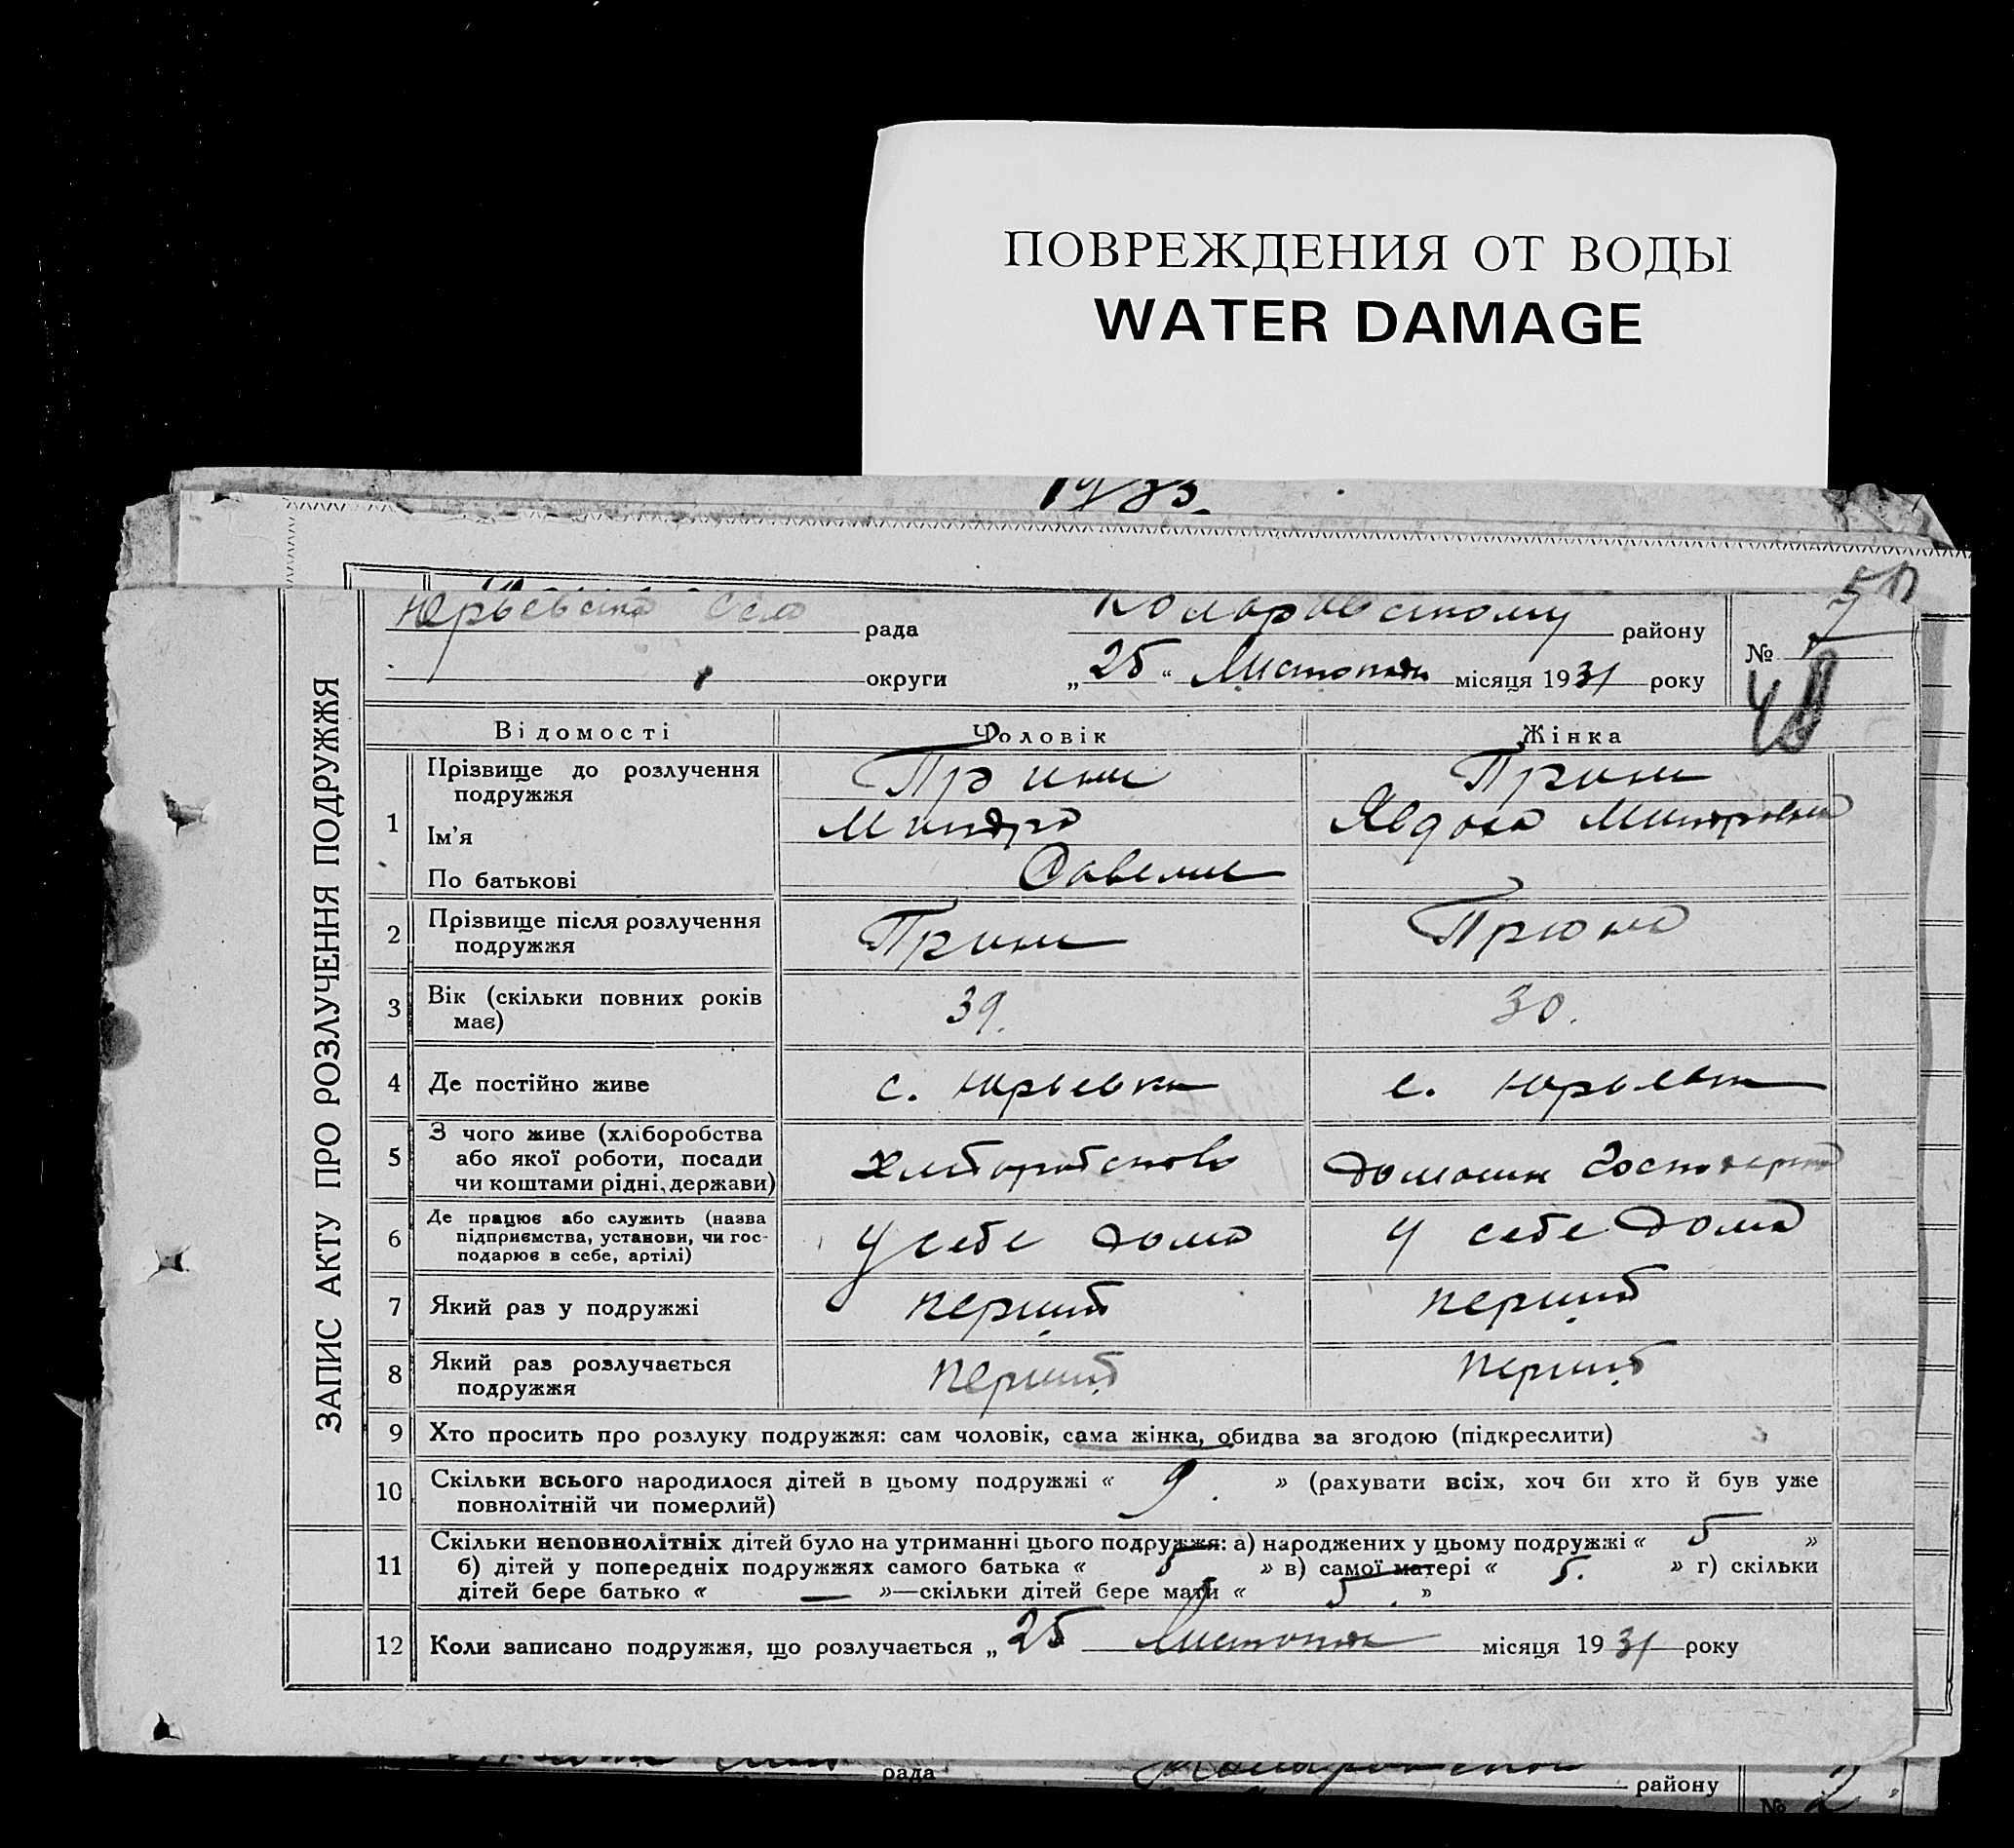 ПОВРЕЖДЕНИЯ ОТ ВОДЫ
WATER DAMAGE
ЗАПИС АКТУ ПРО РОЗЛУЧЕННЯ ПОДРУЖЖЯ
Юрьевська рада районy
округи „25“ Листопада місяця 1931 року
№
48
Відомості Чоловік Жінка
1 Прізвище до розлучення подружжя
Ім'я
По батькові Савелив
2 Прізвище після розлучення
подружжя
3 Вік (скільки повних років 39. 30.
має)
4 Де постійно живе с. Юрьевка с. Юрьевка
5 З чого живе (хліборобства
або якої роботи, посади
чи коштами рідні, держави)
6 Де працює або служить (назва
підприємства, установи, чи гос-
подарює в себе, артілі) У себе дома У себе дома
7 Який раз у подружжі перший перший
8 Який раз розлучається перший перший
подружжя
9 Хто просить про розлуку подружжя: сам чоловік, сама жінка, обидва за згодою (підкреслити)
10 Скільки всього народилося дітей в цьому подружжі « 9. » (рахувати всіх, хоч би хто й був уже
повнолітній чи померлий)
11 Скільки неповнолітніх дітей було на утриманні цього подружжя: а) народжених у цьому подружжі « 5 »
б) дітей у попередніх подружжях самого батька « 5 » в) самої матері « 5. » г) скільки
дітей бере батько « — »—скільки дітей бере мати « 5. »
12 Коли записано подружжя, що розлучається „25 Листопада місяця 1931 року
рада
району
№ 2